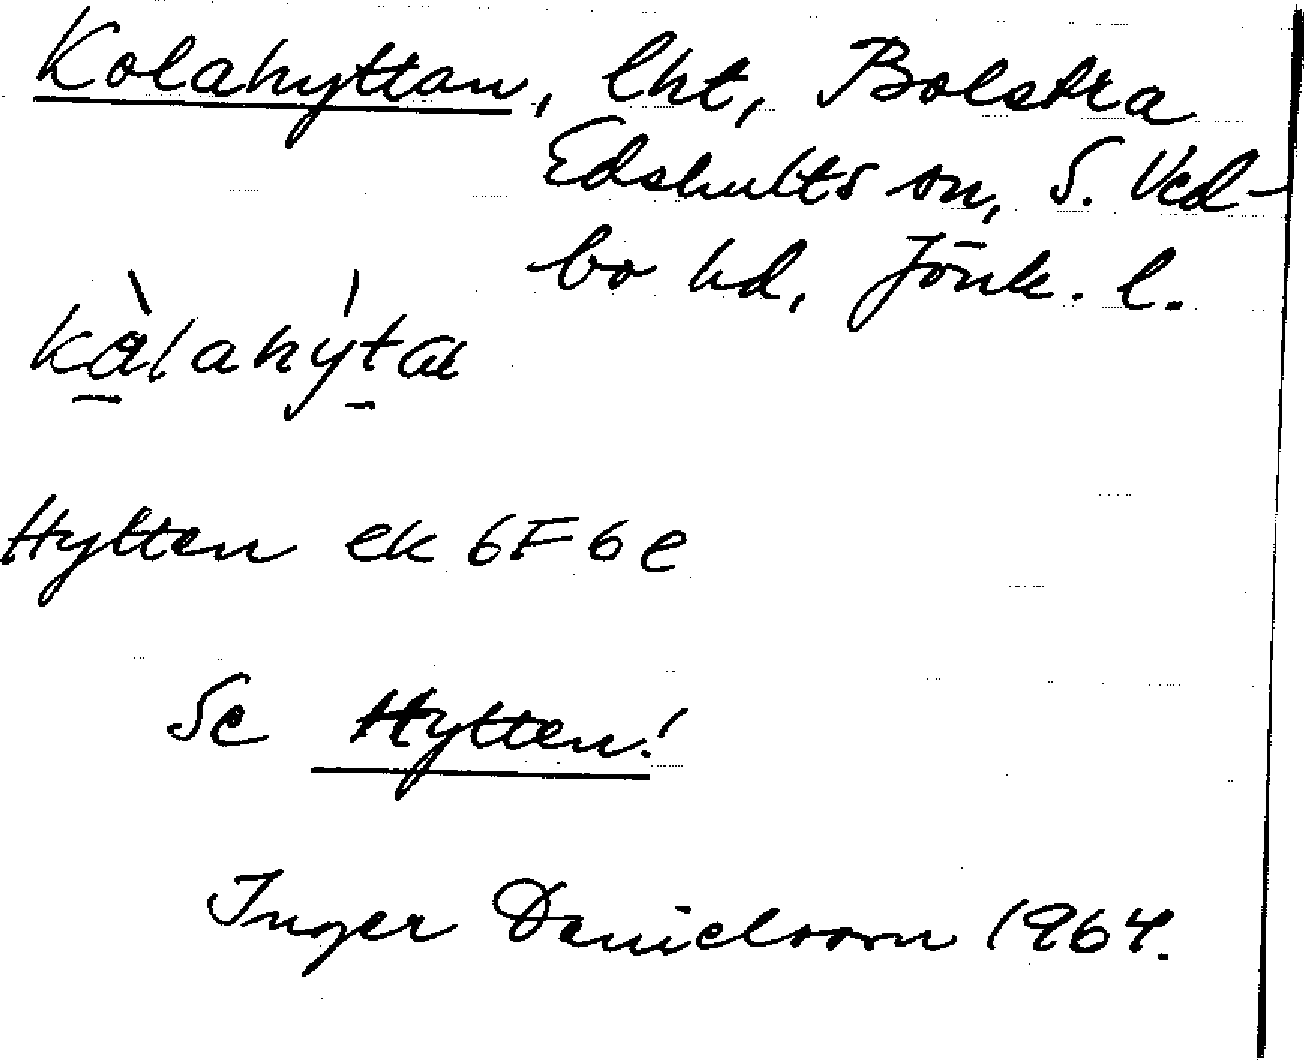 Kolahyttan, lht, Bolstra
Edshults sn, S. Ved-
bo hd, Jönk. l.
kålahýtæ
Hytten ek 6F6e
Se Hytten!
Inger Danielsson 1964.